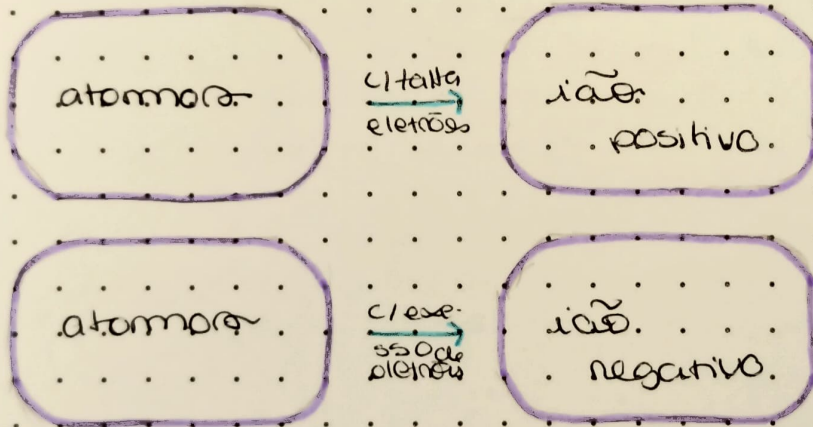 atomos
c/ falta
eletrões
ião
positivo
atomos
c/ exe-
sso de
eletrões
ião
negativo